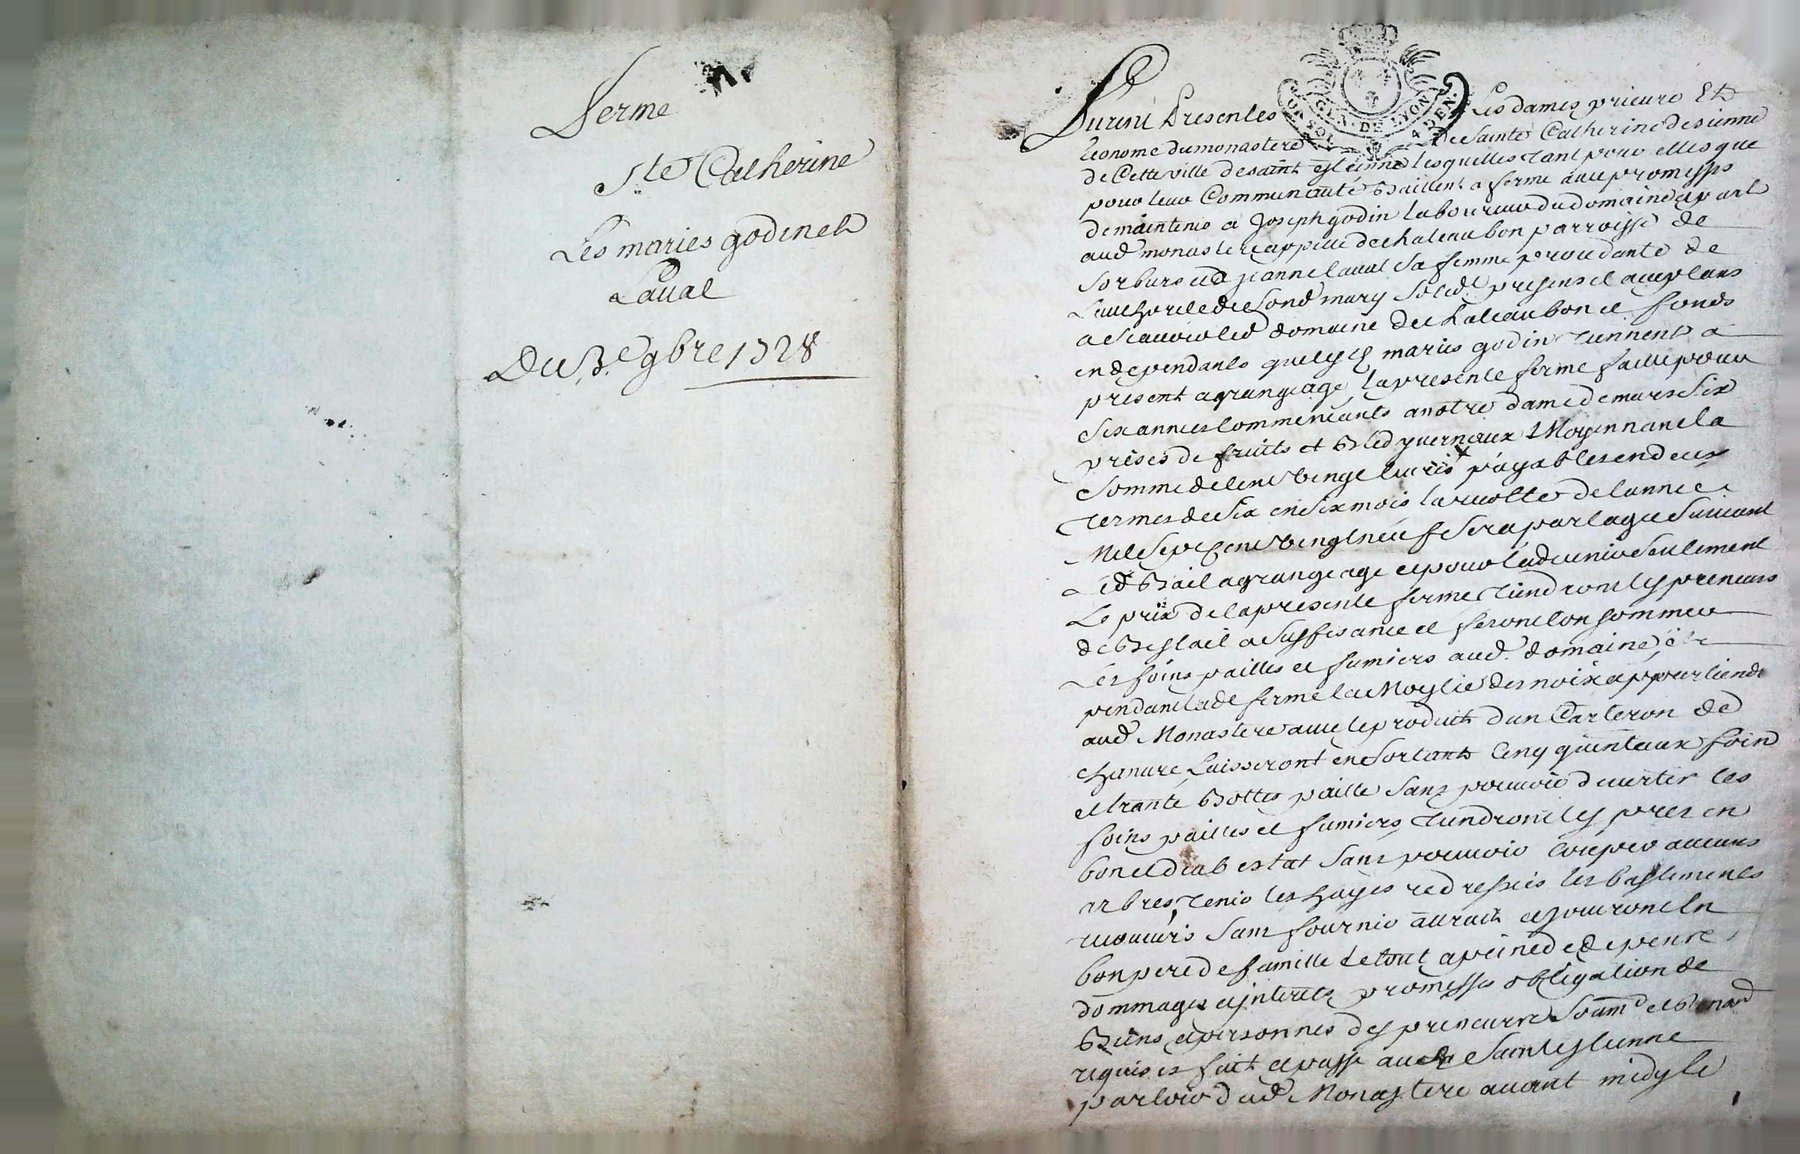 ferme
Ste Catherine
Les maries godin et
Laual
Du 3e 9bre 1728
GEN. DE LYON
4 DEN.
Furent Presentes Les dames prieure Et
Econome du monastere de Sainte Catherine de sienne
de Cette ville de saint estienne lesquelles tant pour elles que
pour leur Communauté Baillent a ferme auec promesses
de maintenir a Joseph godin laboureur du domaine apart
aud monastere appellé de chateaubon parroisse de
Sorbiers et a jeanne laual sa femme procedante de
L'authorité de sond mary solid presens et acceptans
a scauoir led domaine de chateaubon et fonds
en dependants que lesd maries godin tiennent a
present a grangeage la presente ferme faitte pour
six années commencants a notre dame de mars six
prises de fruits et Bled yuernaux Moyennant la
somme de cent vingt liures payables en deux
termes de six en six mois la recolte de l'année
Mil Sept Cent vingt neuf sera partagée suiuant
Led Bail a grangeage et pour lad seulement
Le prix de la presente ferme tiendront les preneurs
de Bestail a suffisance et feront consommer
Les foins pailles et fumiers aud domaine
pendant lad ferme la Moytié des noix appartiendra
aud Monastere auec le produit d'un Carteron de
chanure Laisseront en sortant Cinq quinteaux foin
et trante Bottes paille sans pouuoir diuertir les
foins pailles et fumiers tiendront les prez en
bon et diab estat sans pouuoir couper aucuns
arbres tenir les hayes redressées les bastiments
recouuers sans fournir aucun et jouiront En
bon pere de famille Le tout a peine de depens
dommages et interets promesses obligation de
Biens et personnes des preneurs soum et Renond
requises fait et passé aud Saint estienne
parloir dud Monastere auant midy le